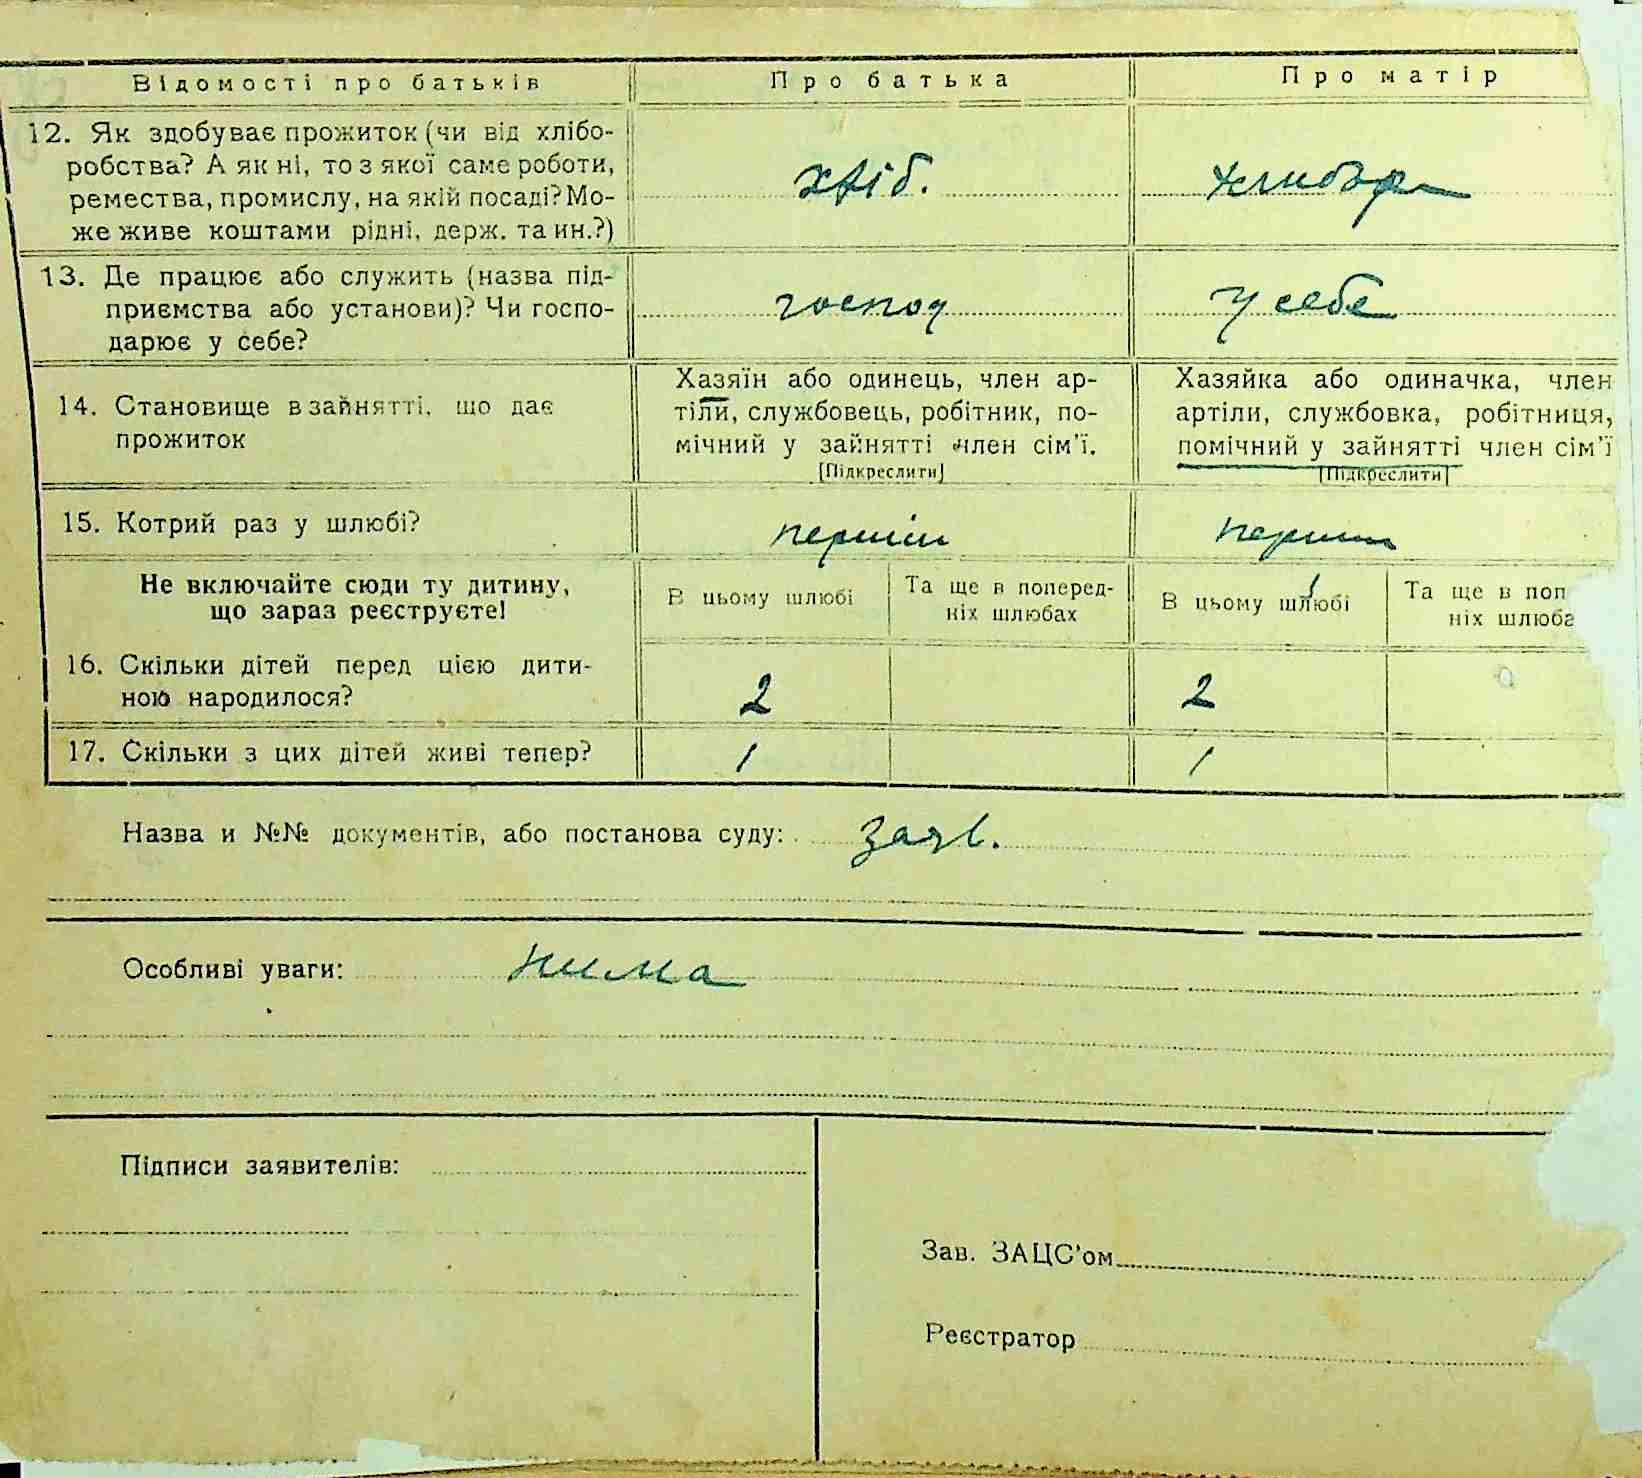 Відомості про батьків Про батька Про матір
12. Як здобуває прожиток (чи від хлібо-
робства? А як ні, то з якої саме роботи,
ремества, промислу, на якій посаді? Мо-
же живе коштами рідні, держ. та ин.?)
хліб.
13. Де працює або служить (назва під-
приємства або установи)? Чи госпо-
дарює у себе?
господ у себе
14. Становище в зайнятті, що дає
прожиток
Хазяїн або одинець, член ар-
тіли, службовець, робітник, по-
мічний у зайнятті член сім'ї.
[Підкреслити]
Хазяйка або одиначка, член
артіли, службовка, робітниця,
помічний у зайнятті член сім'ї
[Підкреслити]
15. Котрий раз у шлюбі? перший перший
Не включайте сюди ту дитину,
що зараз реєструєте!
В цьому шлюбі
Та ще в поперед-
ніх шлюбах
В цьому шлюбі
Та ще в поп
ніх шлюба
16. Скільки дітей перед цією дити-
ною народилося?
2 2
17. Скільки з цих дітей живі тепер? 1 1
Назва и №№ документів, або постанова суду: заяв.
Особливі уваги: нима
Підписи заявителів:
Зав. ЗАЦС'ом
Реєстратор